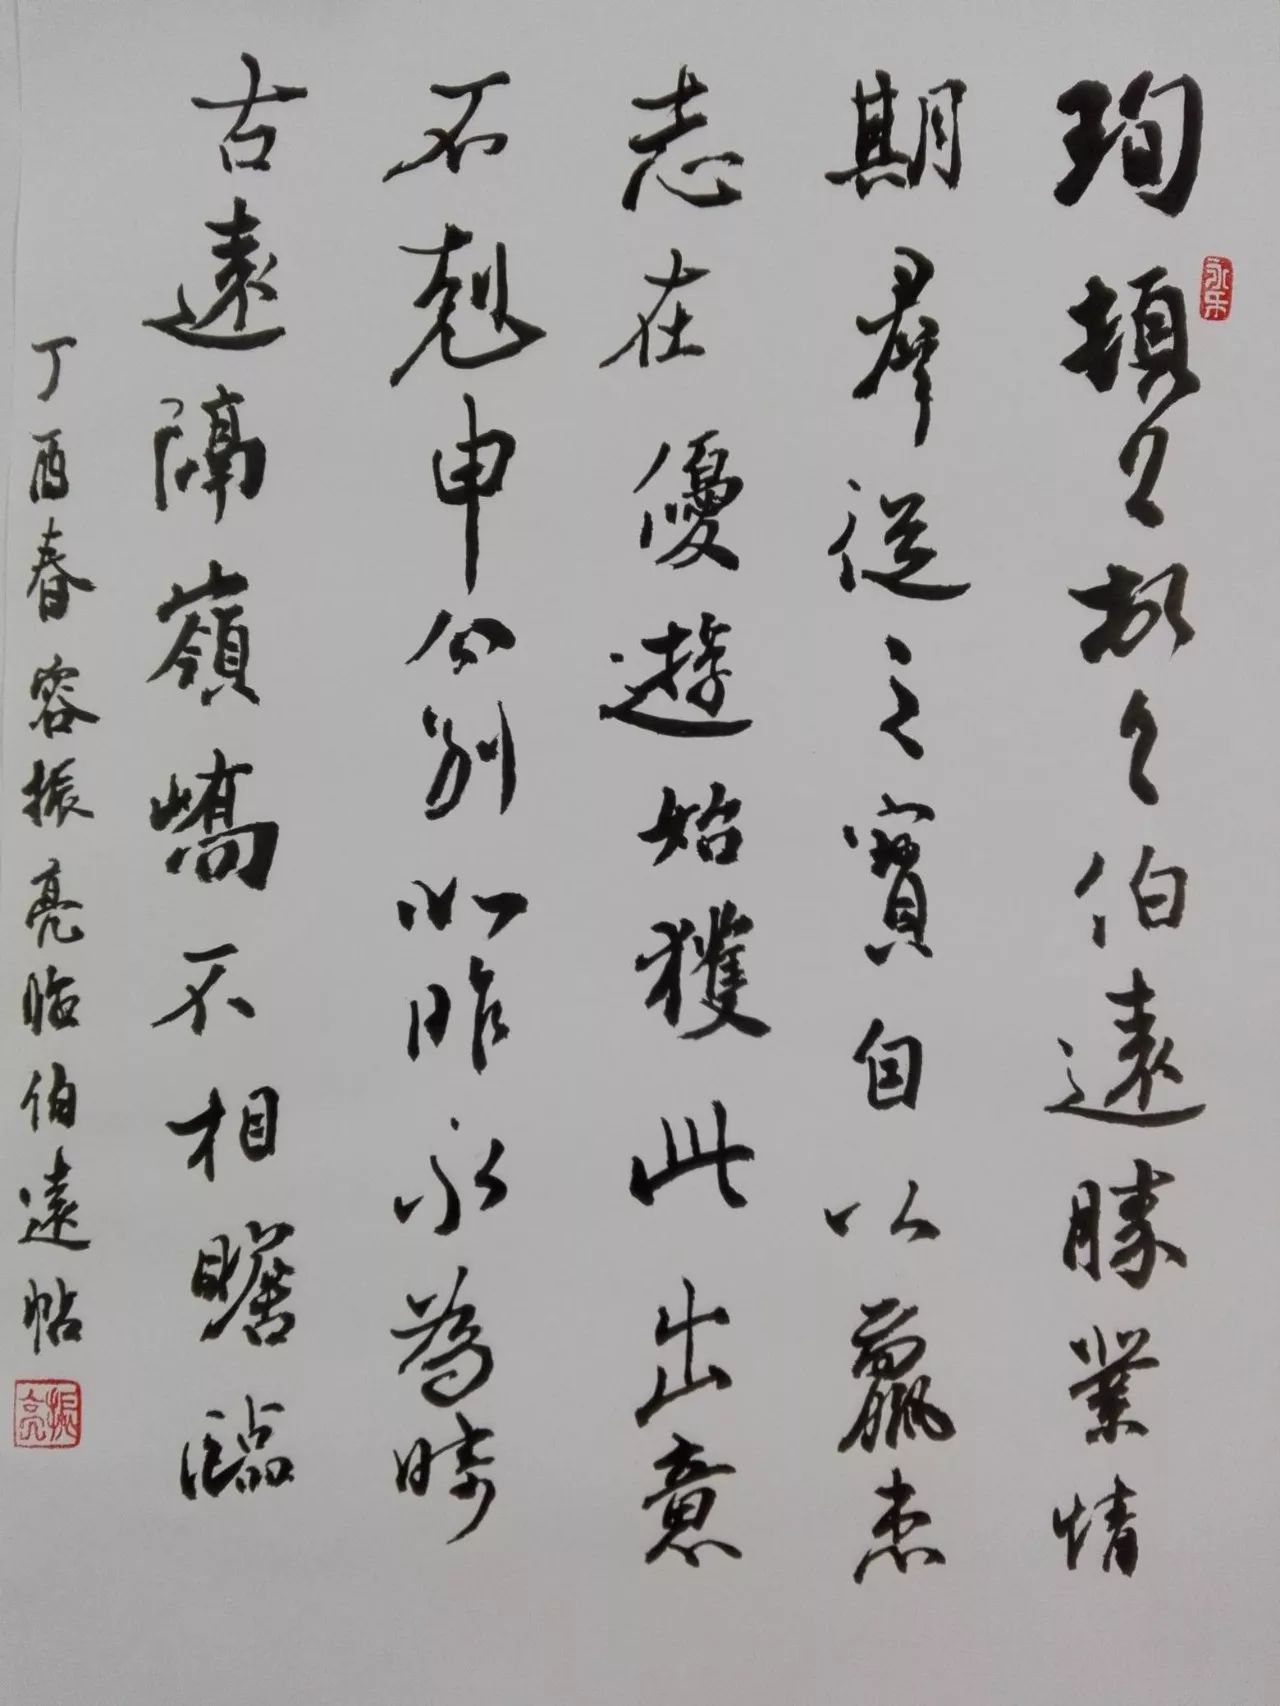 珣頓首頓首伯遠勝業情
期群從之寶自以羸患
志在優遊始獲此出意
不剋申分別如昨永為疇
古遠隔嶺嶠不相瞻臨
丁酉春容振亮临伯遠帖
永乐
振亮